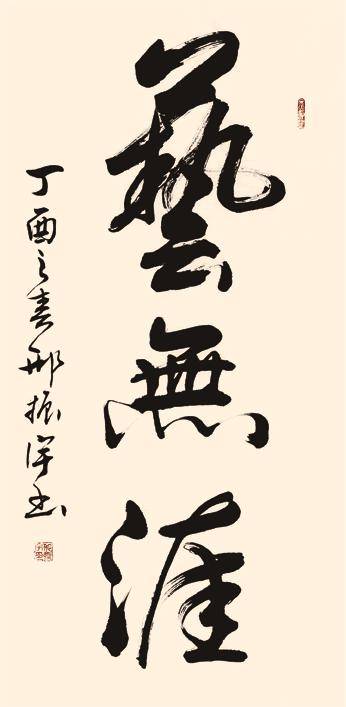 藝無涯
丁酉之春邢振洋書